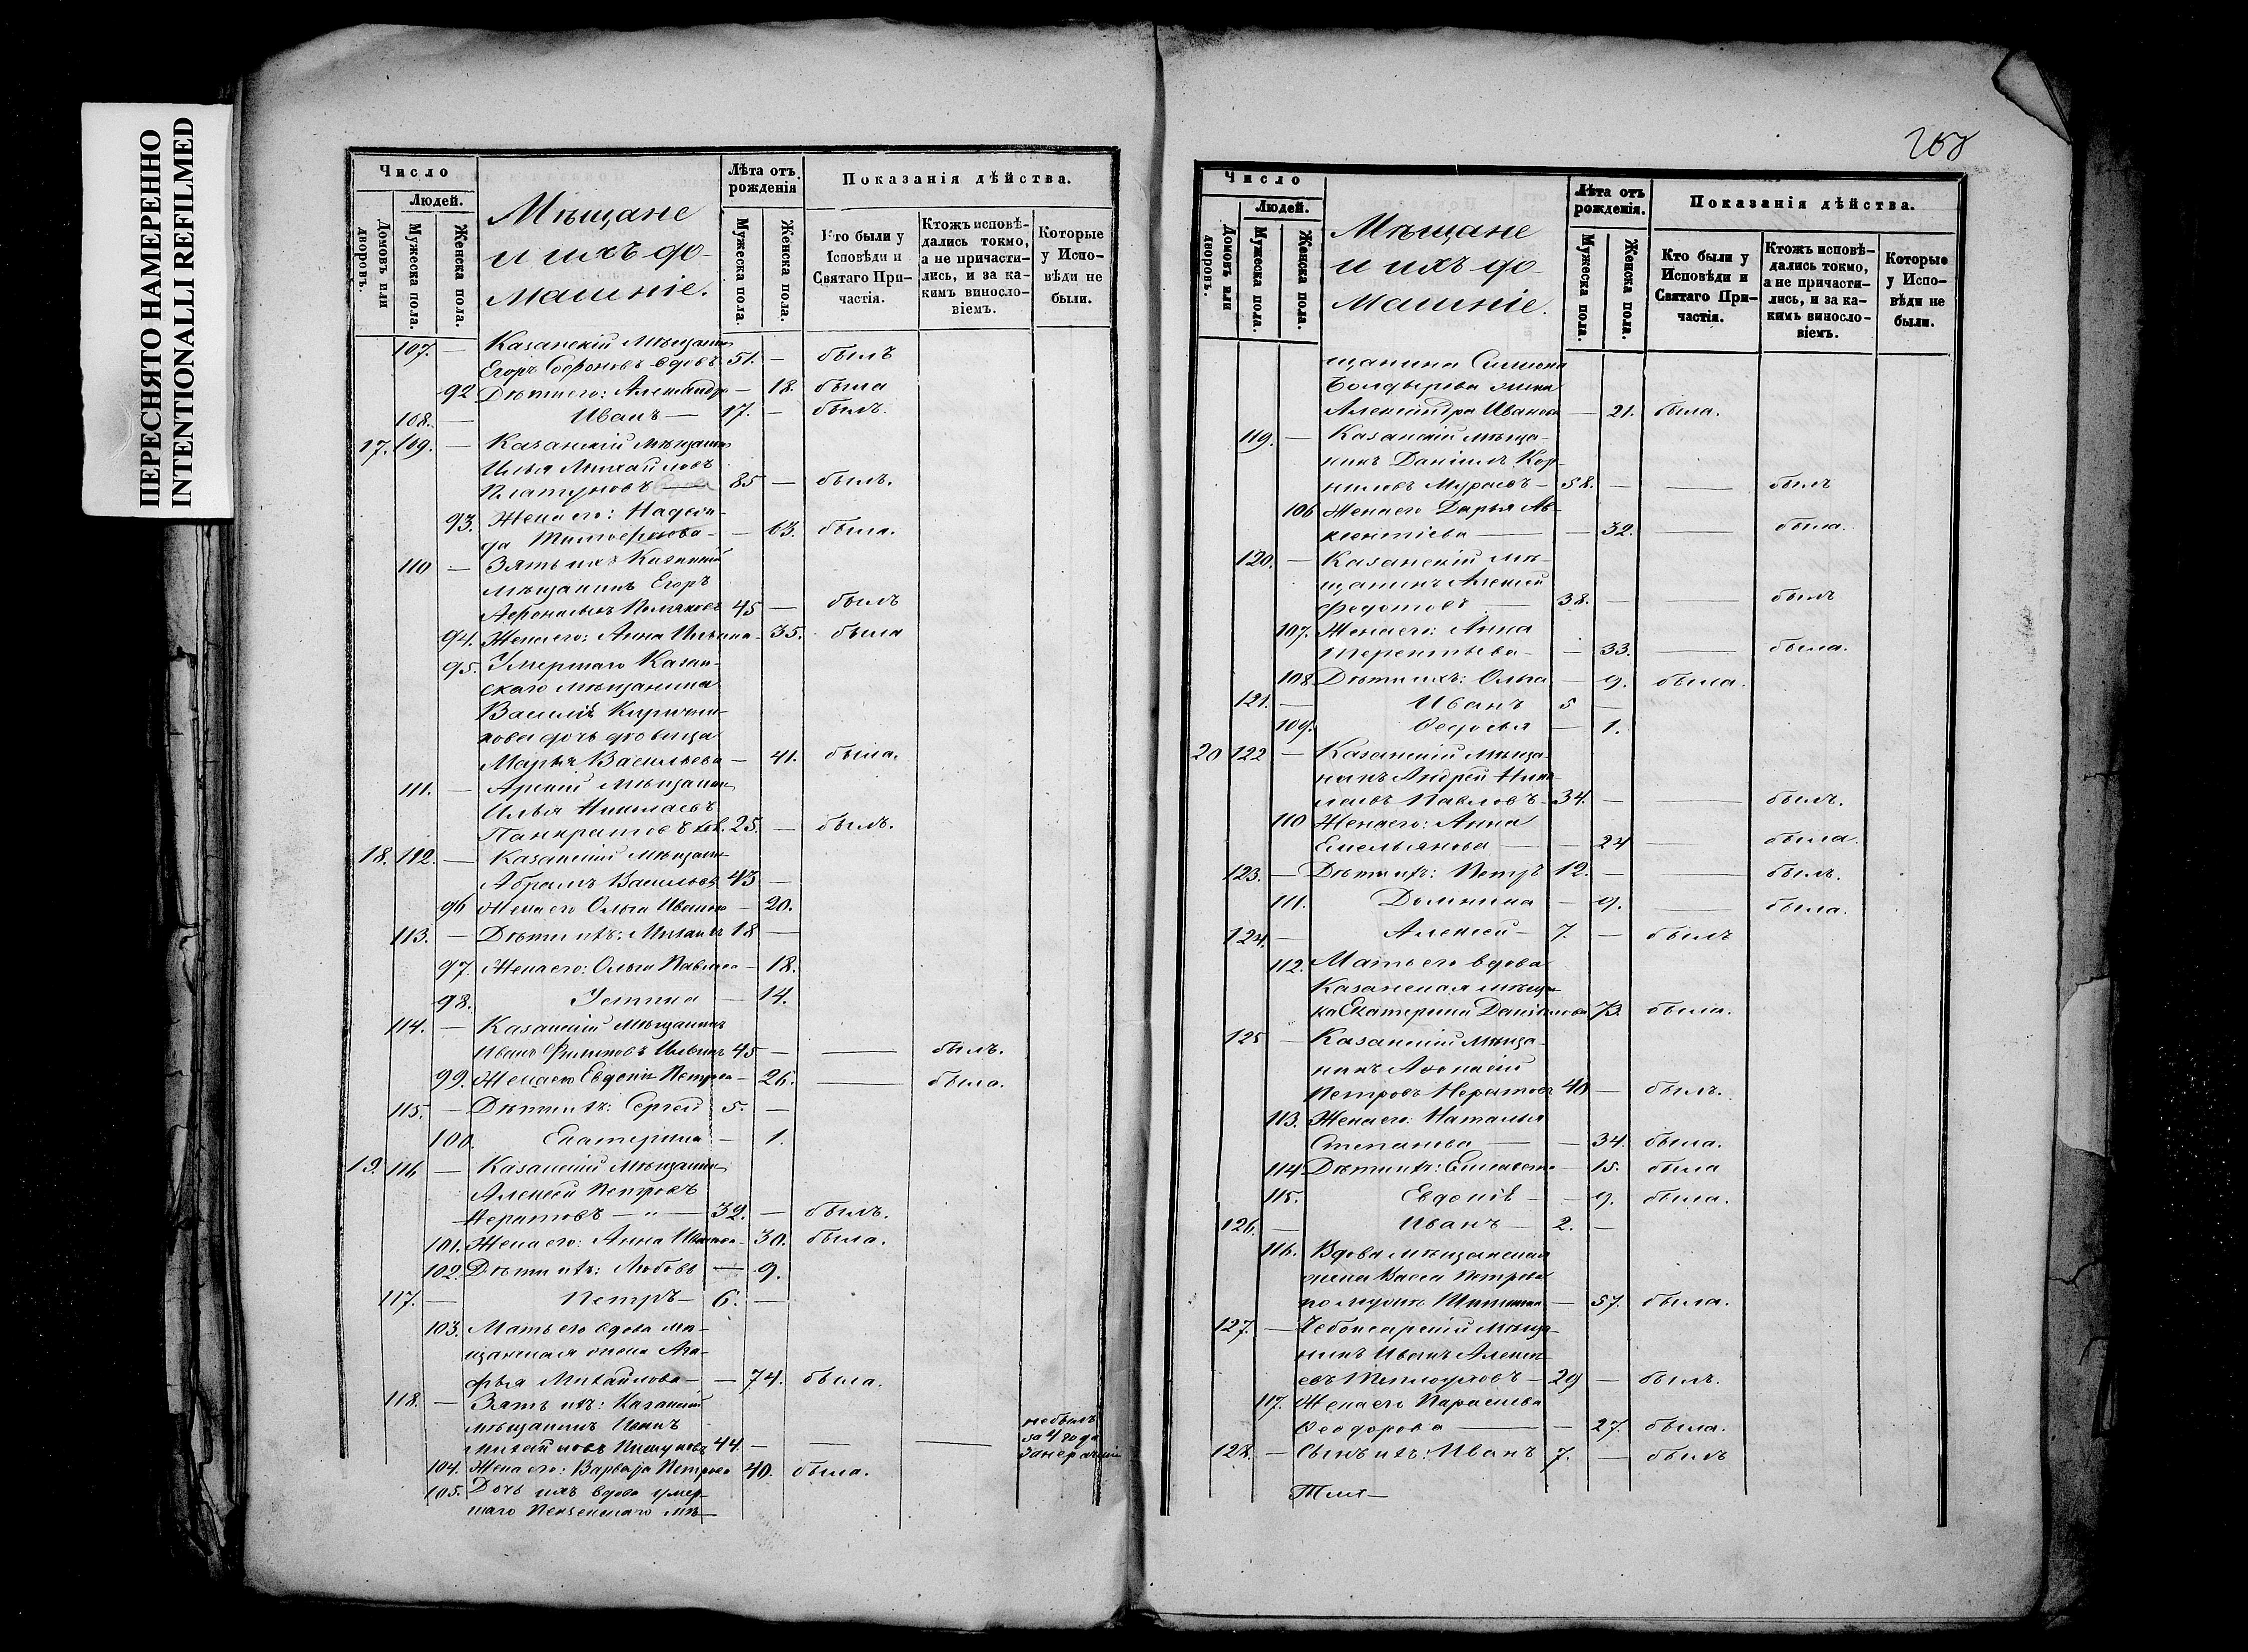 ПЕРЕСНЯТО НАМЕРЕННО
INTENTIONALLI REFILMED
Число
Людей.
Домовъ или дворовъ.
Мужеска пола.
Женска пола.
Мѣщане
и ихъ до-
машніе.
Лѣта отъ рожденія
Мужеска пола.
Женска пола.
Показанія дѣйства.
Кто были у Исповѣди и Святаго Причастія.
Ктожъ исповѣдались токмо, а не причастились, и за какимъ винословіемъ.
Которые у Исповѣди не были.
107. — Казанскій Мѣщанинъ
Егоръ Софоновъ вдовъ 51. — былъ
92 Дѣти его: Александра — 18. была
108. — Иванъ — 17. — былъ.
17. 109. — Казанскій мѣщанинъ
Илья Михайловъ
Платуновъ — 85 — былъ.
93. Жена его: Надеж-
да Тимофеева — — 63. была.
110 — Зять их Казанскій
мѣщанинъ Егоръ
Афонасьевъ Поляковъ 45 — былъ
94. Жена его: Анна Ильина — 35. была
95. Умершаго Казан-
скаго мѣщанина
Василія Кирпични-
кова дочь девица
Марья Васильева — 41. была.
111. — Арскій Мѣщанинъ
Илья Николаевъ
Панкратовъ 25. — былъ.
18. 112. — Казанскій Мѣщанинъ
Абрамъ Васильевъ 43 —
96 Жена его Ольга Иванова — 20.
113. — Дѣти ихъ: Михаилъ 18 —
97. Жена его: Ольга Павлова — 18.
98. Устина — 14.
114. — Казанскій Мѣщанинъ
Иванъ Филиповъ Ильинъ 45 — — былъ.
99. Жена его Евдокія Петрова — 26. — была.
115. — Дѣти ихъ: Сергей 5. —
100. Екатерина — 1.
19. 116 — Казанскій Мѣщанинъ
Алексей Петровъ
Нератовъ — " — 32. — былъ.
101. Жена его: Анна — 30. была.
102. Дѣти ихъ: Любовь — 9.
117. — Петръ — 6. —
103. Мать его вдова мѣ-
щанская жена Ага-
фья Михайлова — — 74. была.
118. — Зять ихъ: Казанскій
мѣщанинъ Иванъ
Михайловъ 44. — — — не былъ
за 4 года
104. Жена его: Варвара Петрова 40. была.
105. Дочь ихъ вдова умер-
шаго Пензенскаго мѣ-
268
Число
Людей.
Домовъ или дворовъ.
Мужеска пола.
Женска пола.
Мѣщане
и ихъ до-
машніе.
Лѣта отъ рожденія.
Мужеска пола.
Женска пола.
Показанія дѣйства.
Кто были у Исповѣди и Святаго Причастія.
Ктожъ исповѣдались токмо, а не причастились, и за какимъ винословіемъ.
Которые у Исповѣди не были.
щанина Симиона
Болдырева жена
Александра Иванова — 21. была.
119. — Казанскій мѣща-
нинъ Даніилъ Кор-
ниловъ Муравъ — 58. — — былъ
106 Жена его Дарья Ав-
ксентіева — — 32. — была.
120. — Казанскій мѣ-
щанинъ Алексей
Федотовъ — 38. — — былъ
107. Жена его: Анна
Терентьева — — 33. — была.
108. Дѣти ихъ: Ольга — 9. была.
121. — Иванъ 5 —
109. Федосья — 1.
20 122 — Казанскій Мѣща-
нинъ Андрей Нико-
лаевъ Павловъ — 34. — — былъ.
110 Жена его: Анна
Емельянова — — 24 — была.
123. — Дѣти ихъ: Петръ 12. — — былъ.
111. Домнина — 9. — была.
124. — Алексей — 7. — былъ
112. Мать его вдова
Казанская мѣщан-
ка Екатерина Данилова 73. была.
125 — Казанскій Мѣща-
нинъ Афонасій
Петровъ Нератовъ 40 — былъ.
113. Жена его: Наталья
Степанова — — 34. была.
114 Дѣти ихъ: Елисавета — 15. была
115. Евдокія — — 9. была.
126. — Иванъ — 2. —
116. Вдова мѣщанская
жена Васса Петрова
по мужѣ — 57. была.
127. — Чебоксарскій Мѣща-
нинъ Иванъ Алексе-
евъ — 29 — былъ.
117. Жена его Парасева
Феодорова — — 27. была.
128. — Сынъ ихъ: Иванъ 7. — былъ